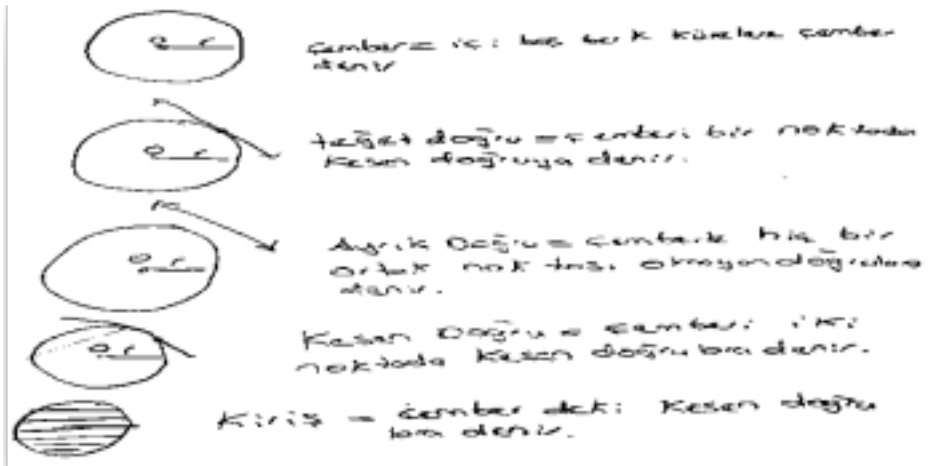 o r
çember = içi boş kürelere çember
denir
o r
teğet doğru = çemberi bir noktada
kesen doğruya denir.
o r
Ayrık Doğru = çemberle hiç bir
ortak noktası olmayan doğrulara
denir.
o r
Kesen Doğru = çemberi iki
noktada kesen doğrulara denir.
Kiriş = çember deki kesen doğru
lara denir.